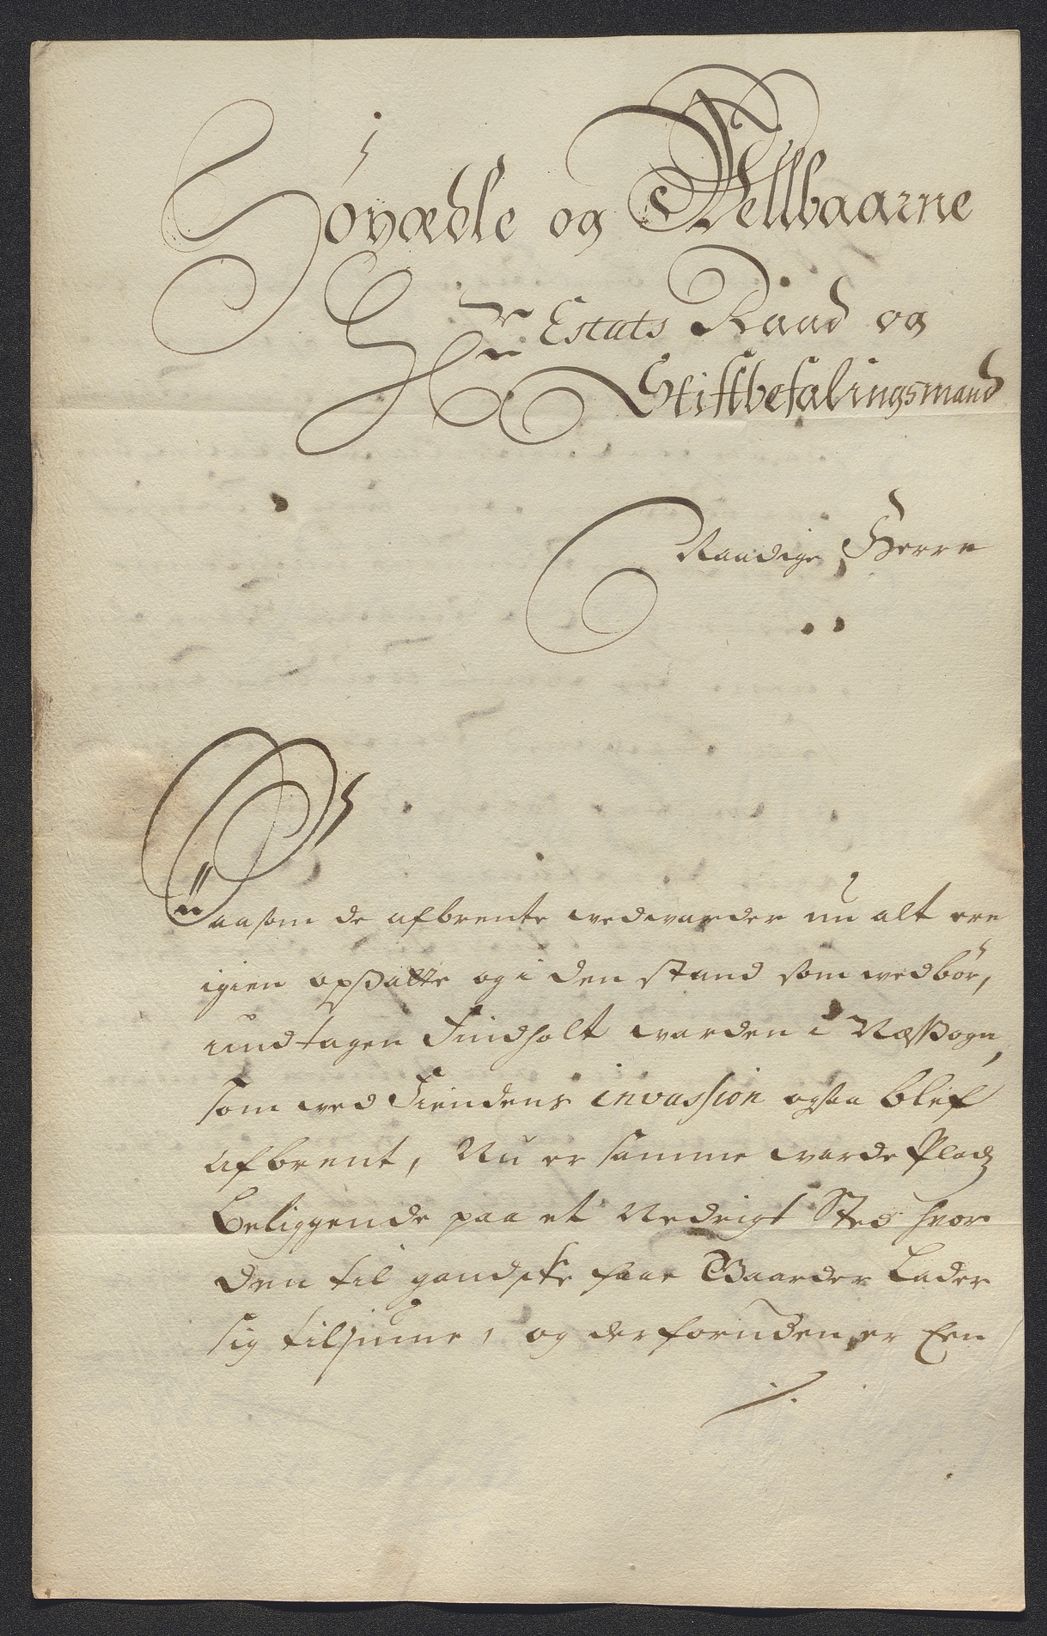 Høyædle og Wellbaarne
Hr: Estats Raad og
Stiftbefalingsmand
Naadige Herre
Saasom de afbrente vedvarder nu alt ere
igien opsatte og i den stand som ved bör,
undtagen Findholt varden i Næs Sogn,
som ved Fiendens invassion ogsaa blef
afbrent, Nu er samme varde Pladz
Beliggende paa et Nedrigt Sted hvor
den til gandske faae Waarder Lader
sig tilsiune, og der foruden er Een